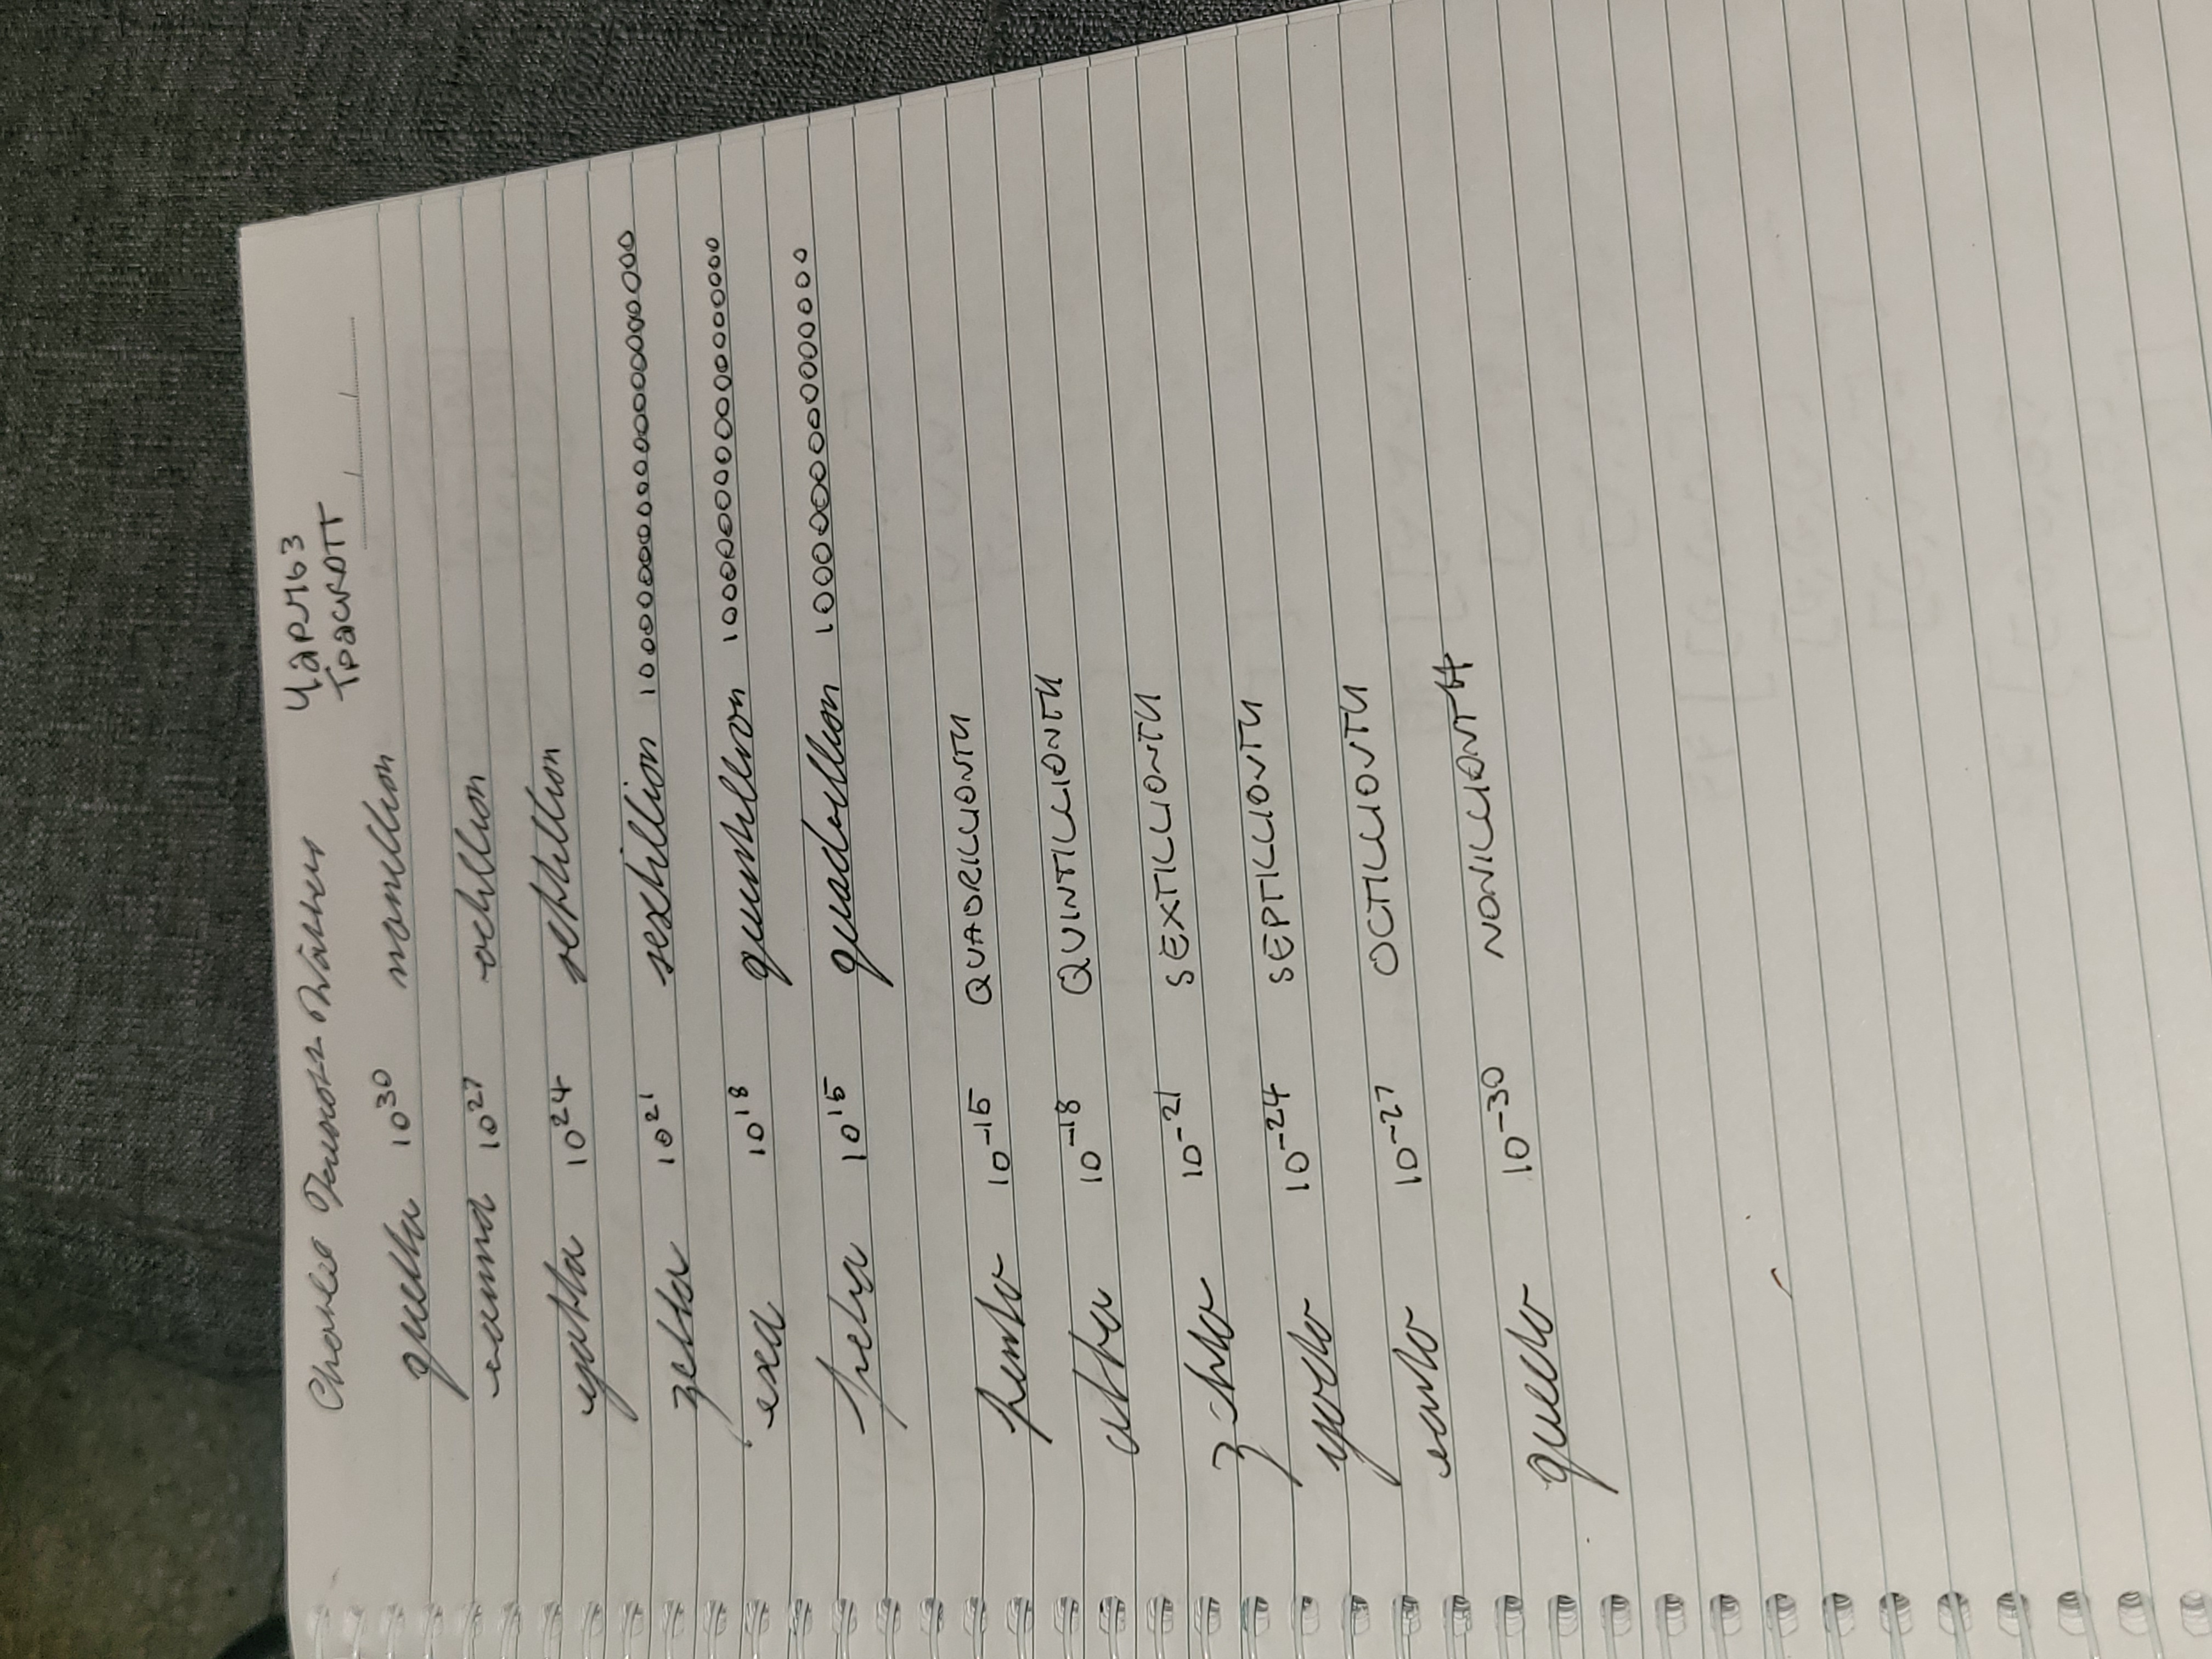 Charles Truscott Watters
Чарльз
Траскотт
quetta 10³⁰ nonillion
ronna 10²⁷ octillion
yotta 10²⁴ septillion
zetta 10²¹ sextillion 1000000000000000000000
exa 10¹⁸ quintillion 1000000000000000000
peta 10¹⁵ quadrillion 1000000000000000
femto 10⁻¹⁵ QUADRILLIONTH
atto 10⁻¹⁸ QUINTILLIONTH
zepto 10⁻²¹ SEXTILLIONTH
yocto 10⁻²⁴ SEPTILLIONTH
ronto 10⁻²⁷ OCTILLIONTH
quecto 10⁻³⁰ NONILLIONTH